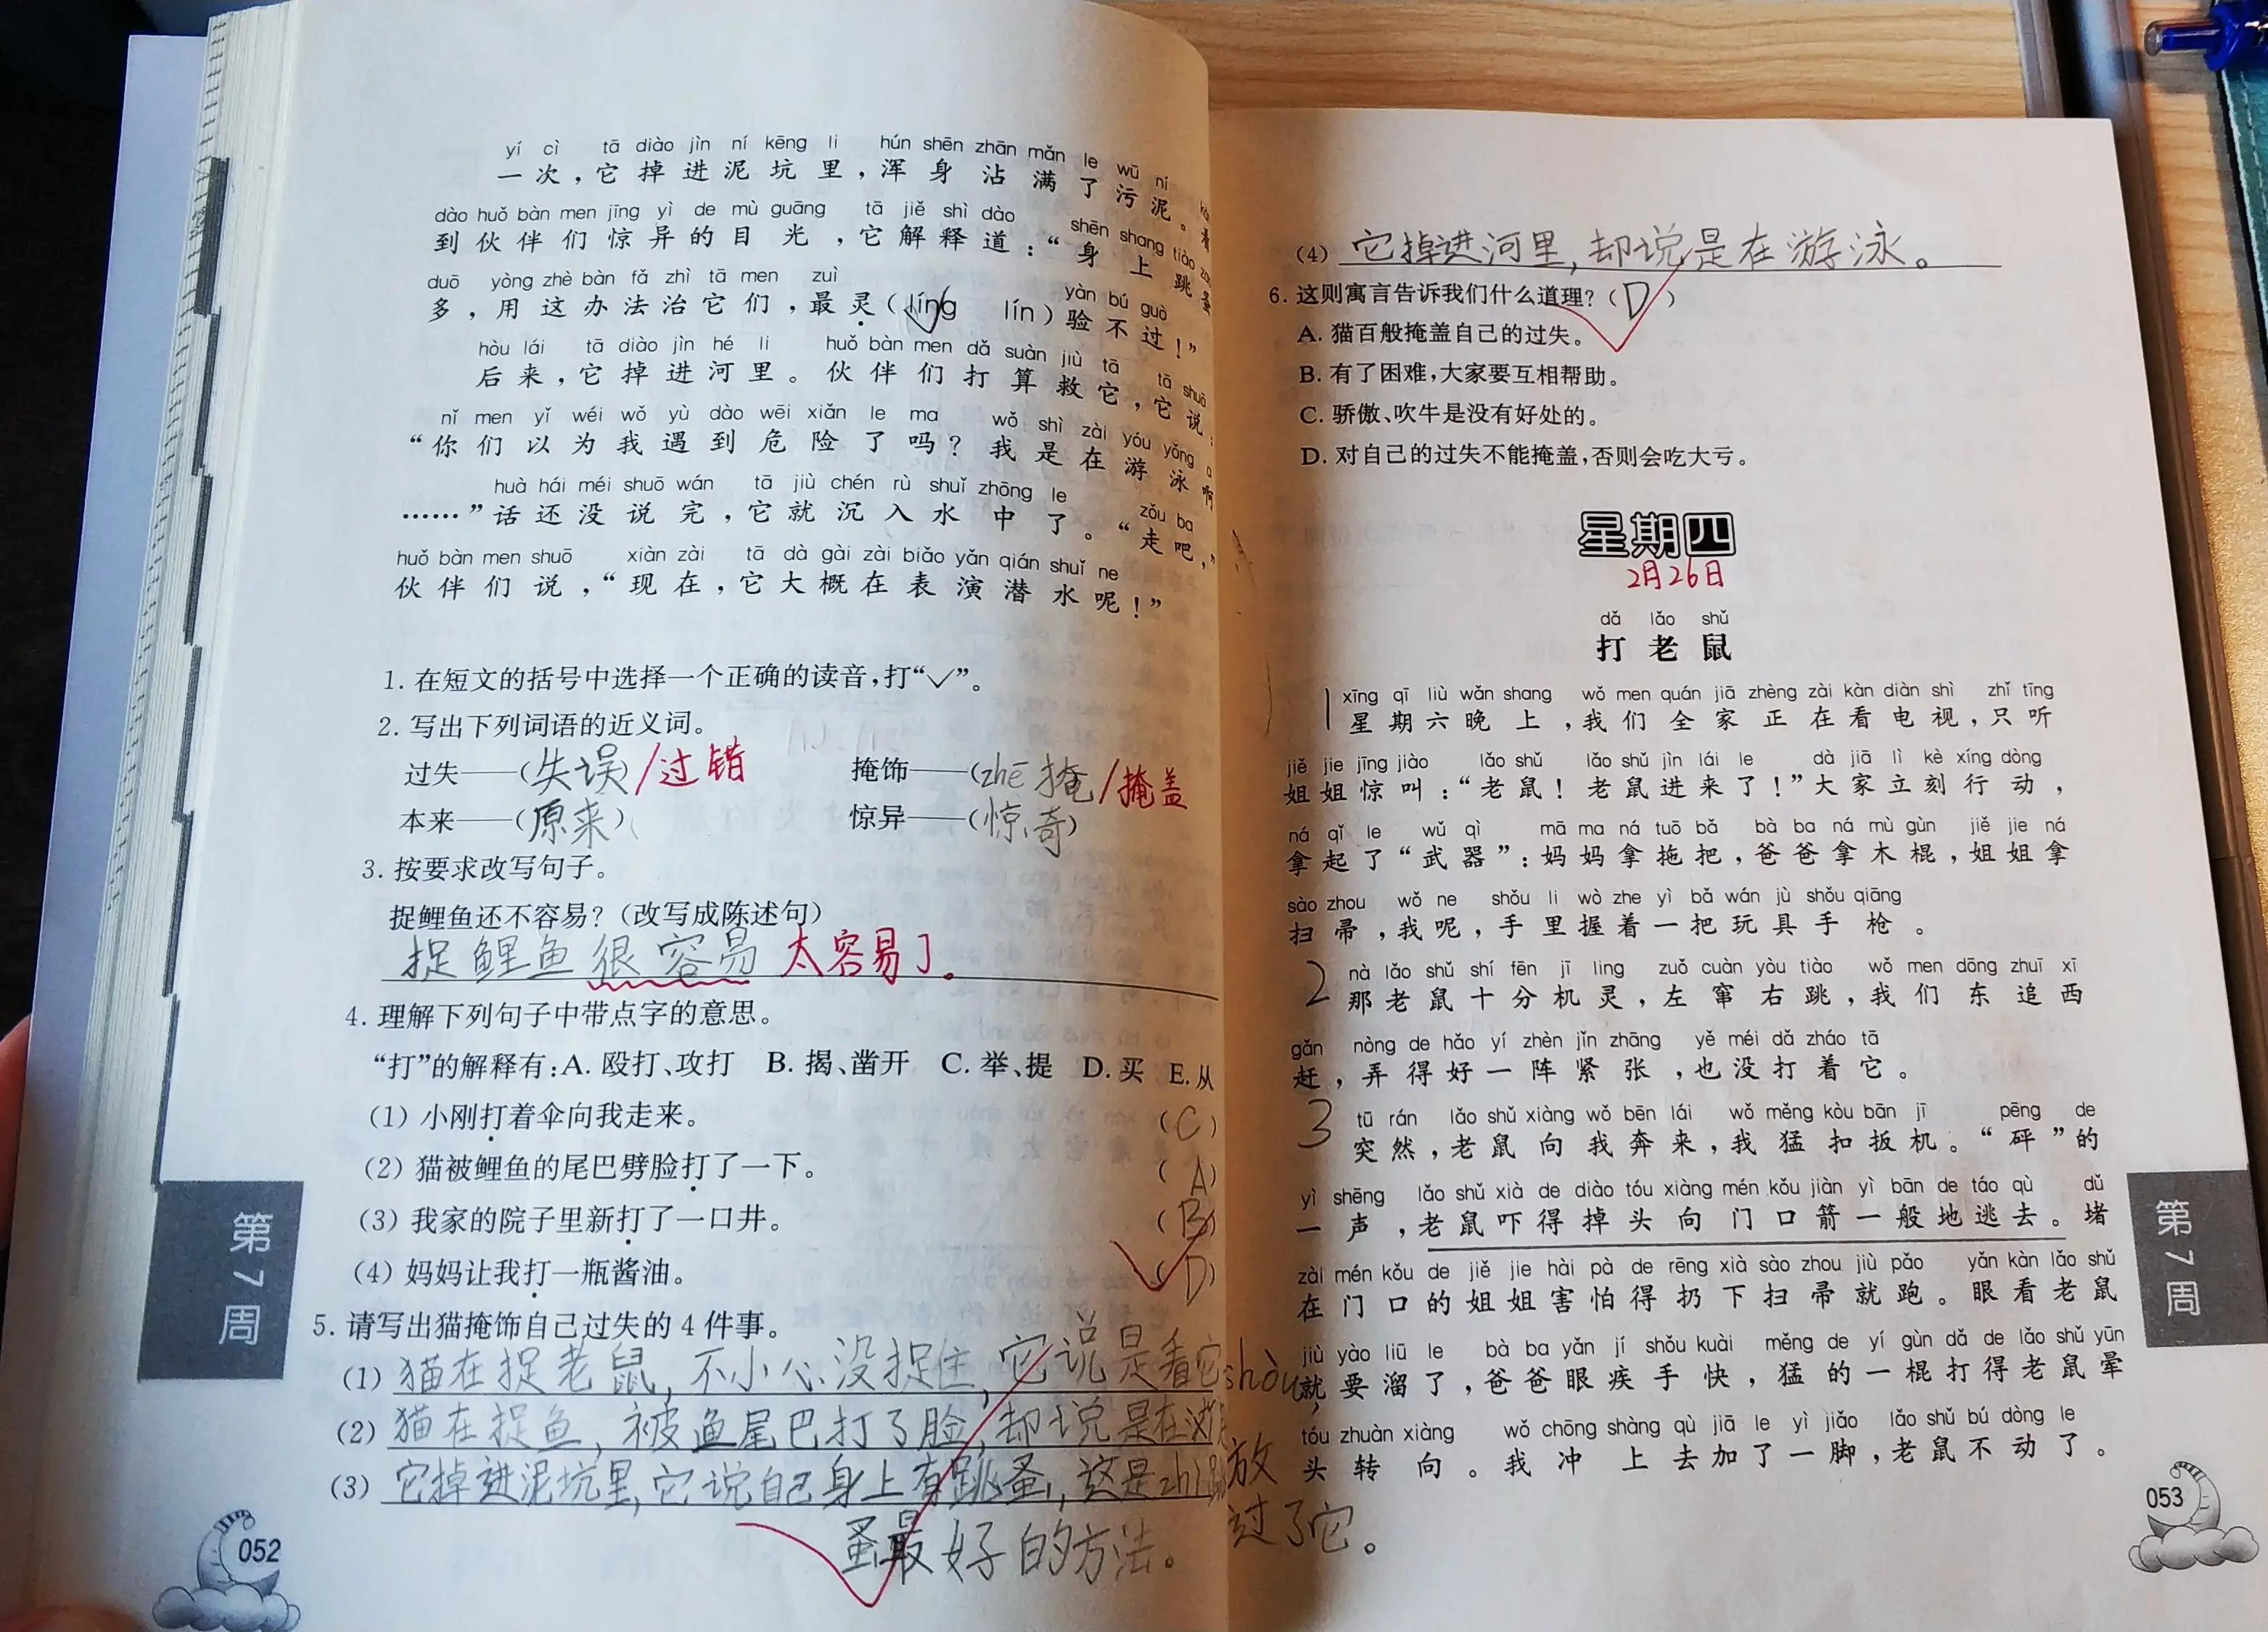 yí cì tā diào jìn ní kēng li hún shēn zhān mǎn le wū ní
一次，它掉进泥坑里，浑身沾满了污泥。看
dào huǒ bàn men jīng yì de mù guāng tā jiě shì dào shēn shang tiào zao
到伙伴们惊异的目光，它解释道：“身上跳蚤
duō yòng zhè bàn fǎ zhì tā men zuì yàn bú guò
多，用这办法治它们，最灵（líng lín）验不过！”
hòu lái tā diào jìn hé li huǒ bàn men dǎ suàn jiù tā tā shuō
后来，它掉进河里。伙伴们打算救它，它说：
nǐ men yǐ wéi wǒ yù dào wēi xiǎn le ma wǒ shì zài yóu yǒng a
“你们以为我遇到危险了吗？我是在游泳啊
huà hái méi shuō wán tā jiù chén rù shuǐ zhōng le zǒu ba
……”话还没说完，它就沉入水中了。“走吧，”
huǒ bàn men shuō xiàn zài tā dà gài zài biǎo yǎn qián shuǐ ne
伙伴们说，“现在，它大概在表演潜水呢！”
1. 在短文的括号中选择一个正确的读音，打“✓”。
2. 写出下列词语的近义词。
过失——（失误）/过错 掩饰——（zhē掩/掩盖
本来——（原来） 惊异——（惊奇）
3. 按要求改写句子。
捉鲤鱼还不容易？（改写成陈述句）
捉鲤鱼很容易 太容易了。
4. 理解下列句子中带点字的意思。
“打”的解释有：A. 殴打、攻打 B. 揭、凿开 C. 举、提 D. 买 E. 从
（1）小刚打着伞向我走来。 （C）
（2）猫被鲤鱼的尾巴劈脸打了一下。 （A）
（3）我家的院子里新打了一口井。 （B）
（4）妈妈让我打一瓶酱油。 （D）
5. 请写出猫掩饰自己过失的 4 件事。
（1）猫在捉老鼠，不小心没捉住，它说是看它shòu，
放
过了它。
（2）猫在捉鱼，被鱼尾巴打了脸，却说是在
（3）它掉进泥坑里，它说自己身上有跳蚤，这是zhì跳
蚤最好的方法。
第7周
052
（4）它掉进河里，却说是在游泳。
6. 这则寓言告诉我们什么道理？（D）
A. 猫百般掩盖自己的过失。
B. 有了困难，大家要互相帮助。
C. 骄傲、吹牛是没有好处的。
D. 对自己的过失不能掩盖，否则会吃大亏。
星期四
2月26日
dǎ lǎo shǔ
打老鼠
1 xīng qī liù wǎn shang wǒ men quán jiā zhèng zài kàn diàn shì zhǐ tīng
星期六晚上，我们全家正在看电视，只听
jiě jie jīng jiào lǎo shǔ lǎo shǔ jìn lái le dà jiā lì kè xíng dòng
姐姐惊叫：“老鼠！老鼠进来了！”大家立刻行动，
ná qǐ le wǔ qì mā ma ná tuō bǎ bà ba ná mù gùn jiě jie ná
拿起了“武器”：妈妈拿拖把，爸爸拿木棍，姐姐拿
sào zhou wǒ ne shǒu li wò zhe yì bǎ wán jù shǒu qiāng
扫帚，我呢，手里握着一把玩具手枪。
2 nà lǎo shǔ shí fēn jī ling zuǒ cuàn yòu tiào wǒ men dōng zhuī xī
那老鼠十分机灵，左窜右跳，我们东追西
gǎn nòng de hǎo yí zhèn jǐn zhāng yě méi dǎ zháo tā
赶，弄得好一阵紧张，也没打着它。
3 tū rán lǎo shǔ xiàng wǒ bēn lái wǒ měng kòu bān jī pēng de
突然，老鼠向我奔来，我猛扣扳机。“砰”的
yì shēng lǎo shǔ xià de diào tóu xiàng mén kǒu jiàn yì bān de táo qù dǔ
一声，老鼠吓得掉头向门口箭一般地逃去。堵
zài mén kǒu de jiě jie hài pà de rēng xià sào zhou jiù pǎo yǎn kàn lǎo shǔ
在门口的姐姐害怕得扔下扫帚就跑。眼看老鼠
jiù yào liū le bà ba yǎn jí shǒu kuài měng de yí gùn dǎ de lǎo shǔ yūn
就要溜了，爸爸眼疾手快，猛的一棍打得老鼠晕
tóu zhuàn xiàng wǒ chōng shàng qù jiā le yì jiǎo lǎo shǔ bú dòng le
头转向。我冲上去加了一脚，老鼠不动了。
第7周
053